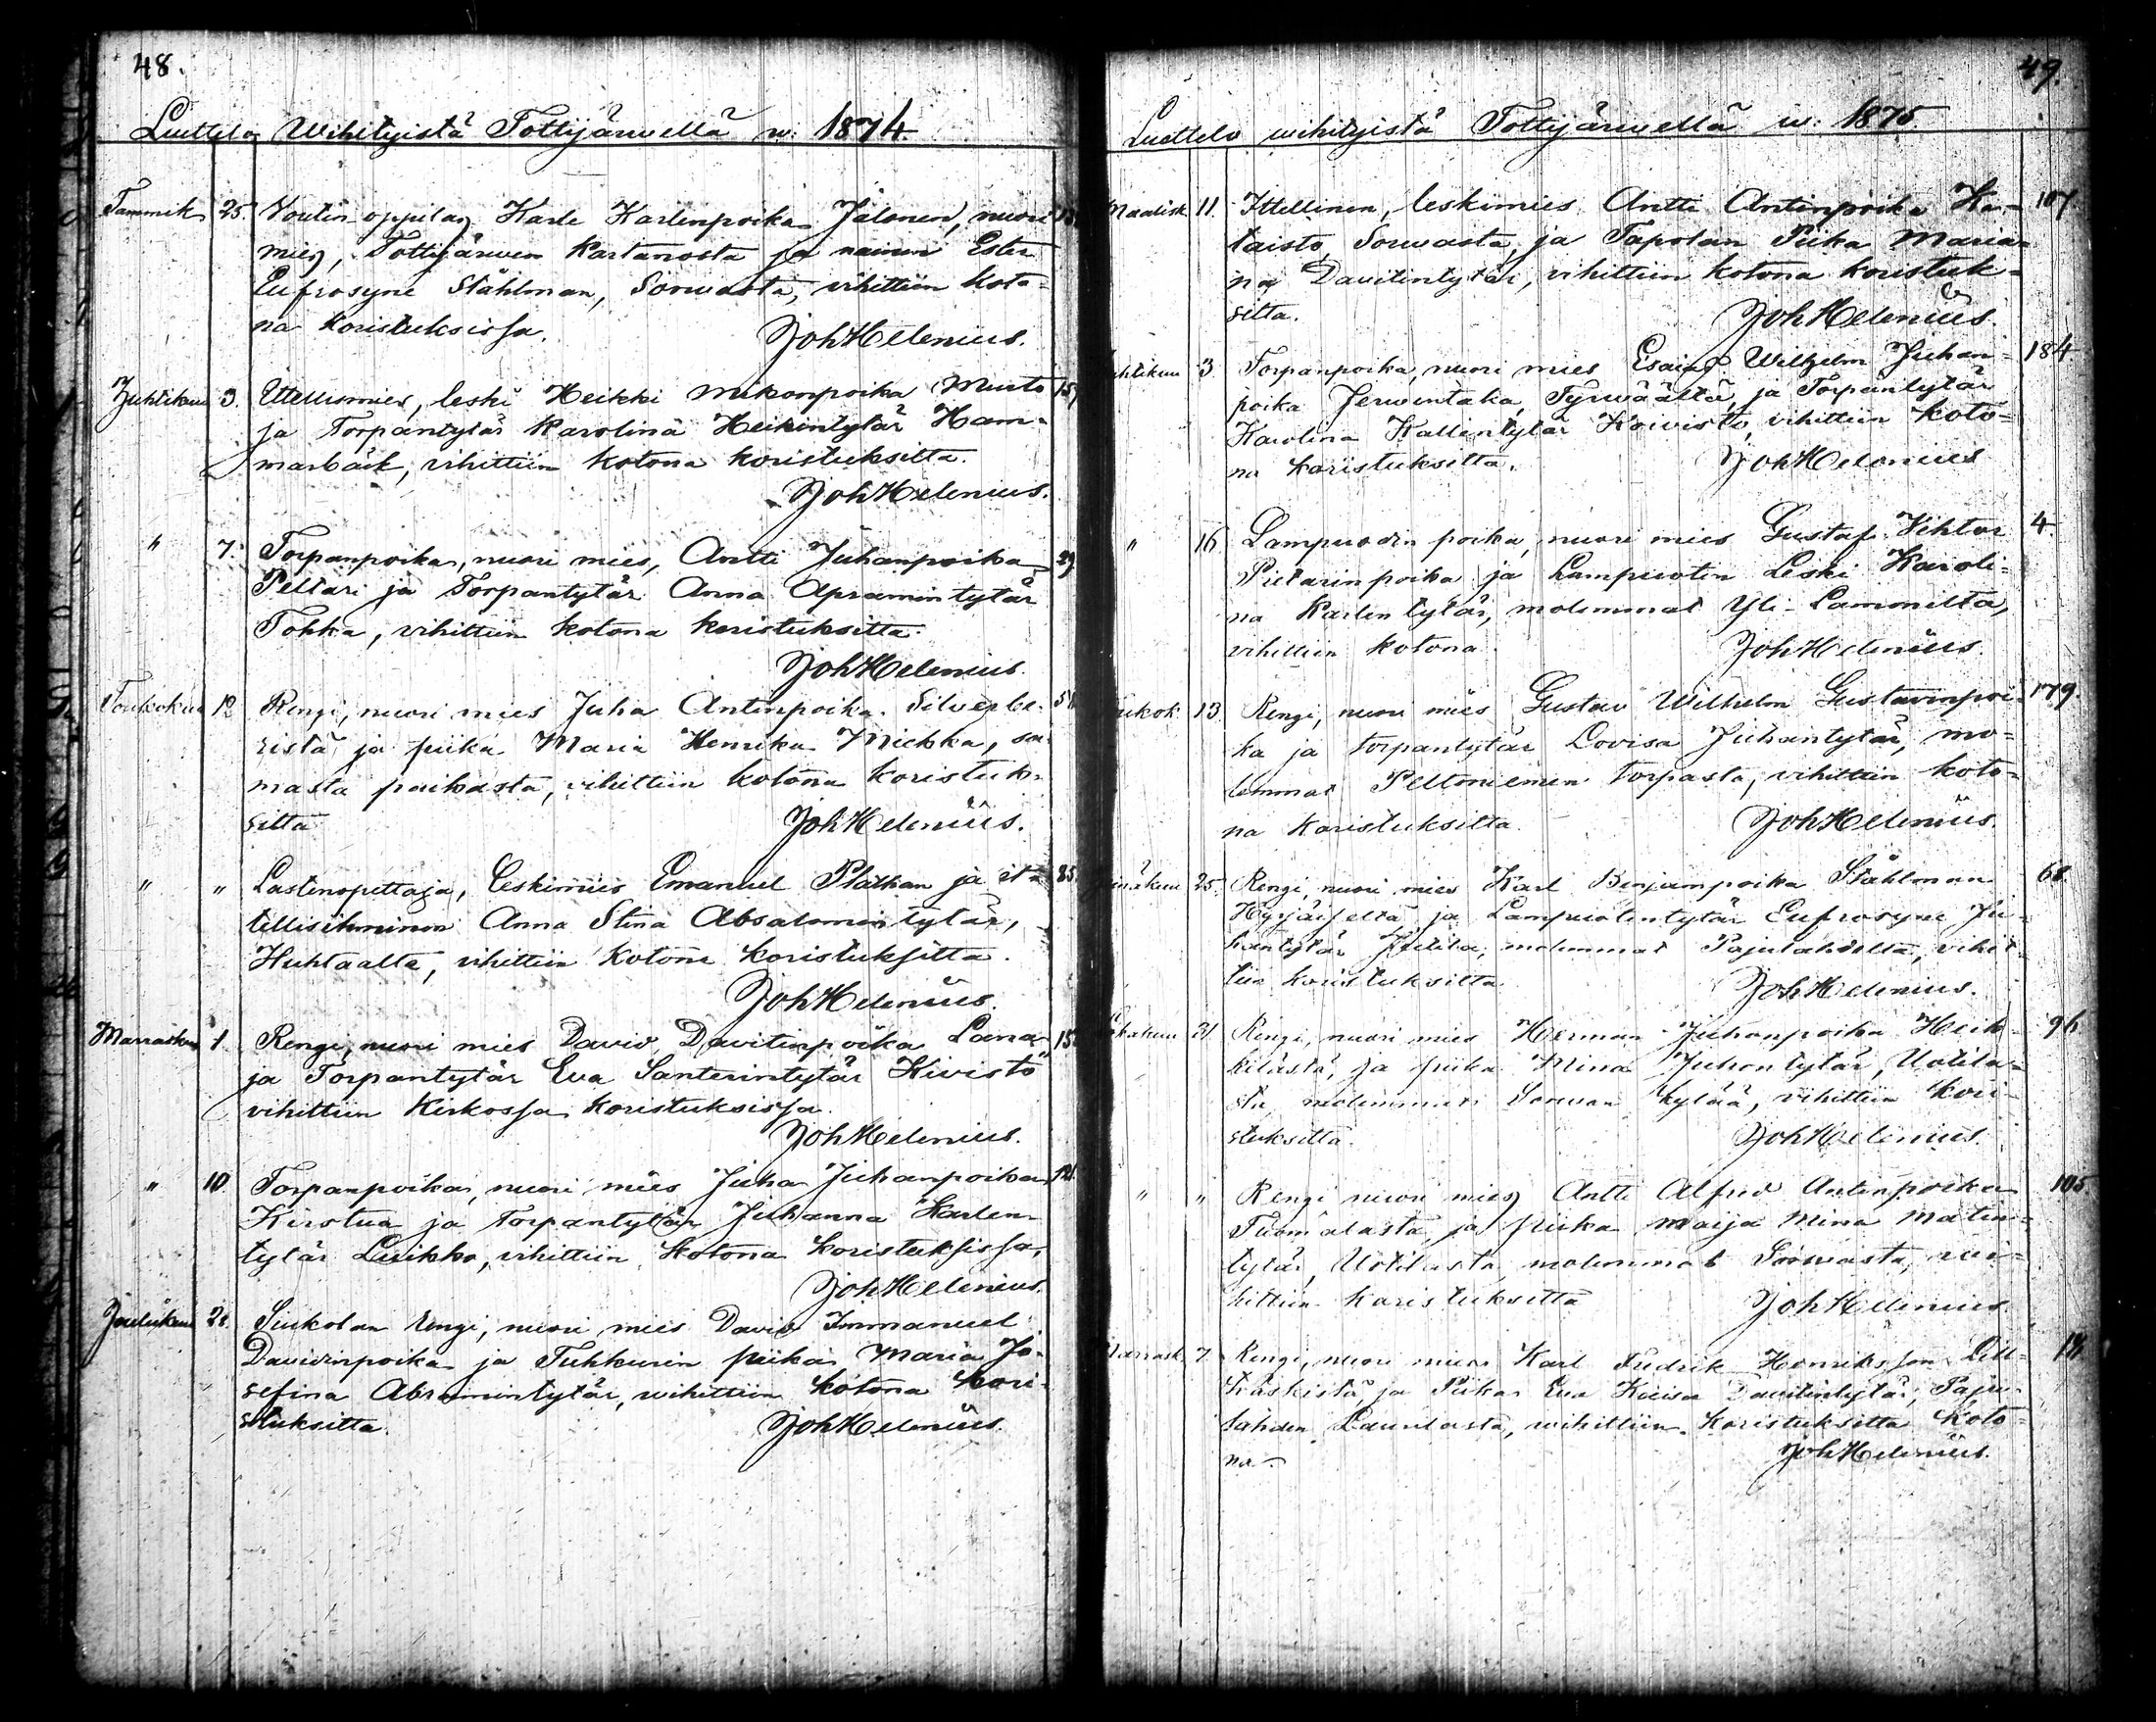 48.
Luettelo Wihityistä Tottijärwellä w: 1874.
Tammik. 25. Voutin oppilas, Karle Karlenpoika Jälonen, nuori
mies, Tottijärwen Kartanosta ja nainen Ester
Eufrosyne Ståhlman, Sorwasta, vihittiin koto-
na koristuksissa.
Joh Helenius.
Huhtikuu 3. Ittellismies, leski Heikki Mikonpoika Musto 159
ja Torpantytär Karolina Heikintytär Ham-
marbäck, vihittiin kotona koristuksitta.
Joh Helenius.
" 7. Torpanpoika, nuori mies, Antti Juhanpoika 29
Peltari ja Torpantytär Anna Apramintytär
Tohka, vihittiin kotona koristuksitta.
Joh Helenius.
Toukokuu 12 Rengi, nuori mies Juha Antinpoika Silverbe-
ristä ja piika Maria Henrika Miekka, sa-
masta paikasta, vihittiin kotona koristuk-
sitta
Joh Helenius.
" " Lastenopettaja, leskimies Emanuel Plathan ja it- 85.
tellisihminen Anna Stina Absalomintytär,
Huhtaalta, vihittiin kotona koristuksitta.
Joh Helenius.
Marraskuu 1 Rengi, nuori mies David Davitinpoika Lana
ja Torpantytär Eva Santerintytär Kivistö
vihittiin Kirkossa koristuksissa.
Joh Helenius.
" 10. Torpanpoika, nuori mies Juha Juhanpoika 121.
Kirstua ja Torpantytär Juhanna Karlen-
tytär Luikko, vihittiin kotona koristuksissa,
Joh Helenius.
Joulukuu 28. Siukolan Rengi, nuori mies David Immanuel
Davidinpoika ja Tuhkurin piika Maria Jo-
sefina Abramintytär, wihittiin kotona kori-
stuksitta.
Joh Helenius.
49.
Luettelo wihityistä Tottijärwellä w: 1875.
Maalisk. 11. Ittellinen, leskimies Antti Antinpoika Ka- 107
taisto, Sorwasta, ja Tapolan Piika Maria-
na Dawitintytär, vihittiin kotona koristuk-
sitta.
Joh Helenius.
Huhtikuu 3. Torpanpoika, nuori mies Esaias Wilhelm Juhan- 184
poika Jerwentaka, Tyrwäästä, ja Torpantytär
Karolina Kallentytär Koivisto, vihittiin koto-
na koristuksitta.
Joh Helenius
" 16 Lampuodin poika, nuori mies Gustaf Vihtor 4.
Pietarinpoika ja Lampuotin Leski Karoli-
na Karlentytär, molemmat Yli-Lammilta,
vihittiin kotona.
Joh Helenius.
Toukok. 13. Rengi, nuori mies Gustav Wilhelm Gustavinpoi- 179.
ka ja torpantytär Lovisa Juhantytär, mo-
lemmat Peltoniemen torpasta, vihittiin koto-
na koristuksitta.
Joh Helenius.
Heinäkuu 25. Rengi, nuori mies Karl Benjampoika Ståhlman 68.
ja Lampuotintytär Eufrosyne Ju-
hantytär Juttila, molemmat Pajulahdelta, vihit-
tiin koristuksitta
Joh Helenius.
31 Rengi, nuori mies Herman Juhanpoika Heik- 96
kilästä, ja piika Mina Juhontytär, Uotila-
sta molemmat Sorwan kylää, vihittiin kori-
stuksitta.
Joh Helenius.
" " Rengi nuori mies, Antti Alfred Antinpoika 105.
Tuomalasta, ja piika Maija Mina Matin-
tytär, Uotilasta, molemmat Sorwasta, wi-
hittiin koristuksitta
Joh Helenius
Marrask. 7. Rengi, nuori mies Karl Fredrik Henriksson Lill-
ja Piika Eva Kaisa Davitintytär, Paju-
lahden Laurilasta, wihittiin koristuksitta koto-
na.
Joh Helenius.